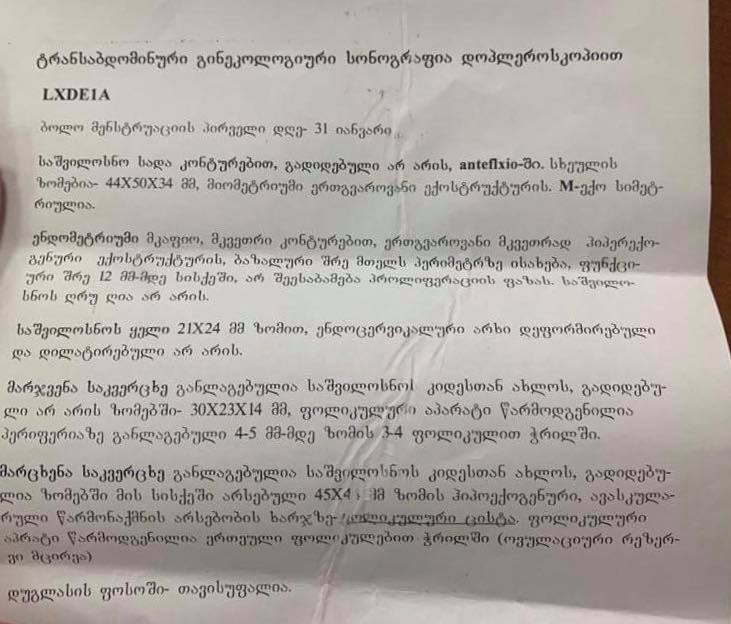 ტრანსაბდომინური გინეკოლოგიური სონოგრაფია დოპლეროსკოპიით
LXDE1A
ბოლო მენსტრუაციის პირველი დღე- 31 იანვარი
საშვილოსნო სადა კონტურებით, გადიდებული არ არის, anteflxio-ში. სხეულის
ზომებია- 44X50X34 მმ, მიომეტრიუმი ერთგვაროვანი ექოსტრუქტურის. M-ექო სიმეტ-
რიულია.
ენდომეტრიუმი მკაფიო, მკვეთრი კონტურებით, ერთგვაროვანი მკვეთრად ჰიპერექო-
გენური ექოსტრუქტურის, ბაზალური შრე მთელს პერიმეტრზე ისახება, ფუნქცი-
ური შრე 12 მმ-მდე სისქეში, არ შეესაბამება პროლიფერაციის ფაზას. საშვილო-
სნოს ღრუ ღია არ არის.
საშვილოსნოს ყელი 21X24 მმ ზომით, ენდოცერვიკალური არხი დეფორმირებული
და დილატირებული არ არის.
მარჯვენა საკვერცხე განლაგებულია საშვილოსნოს კიდესთან ახლოს, გადიდებუ-
ლი არ არის ზომებში- 30X23X14 მმ, ფოლიკულური აპარატი წარმოდგენილია
პერიფერიაზე განლაგებული 4-5 მმ-მდე ზომის 3-4 ფოლიკულით ჭრილში.
მარცხენა საკვერცხე განლაგებულია საშვილოსნოს კიდესთან ახლოს, გადიდებუ-
ლია ზომებში მის სისქეში არსებული მმ ზომის ჰიპოექოგენური, ავასკულა-
რული წარმონაქმნის არსებობის ხარჯზე- ფოლიკულური ცისტა. ფოლიკულური
აპრატი წარმოდგენილია ერთეული ფოლიკულებით ჭრილში (ოვულაციური რეზერ-
ვი მცირეა)
დუგლასის ფოსოში- თავისუფალია.